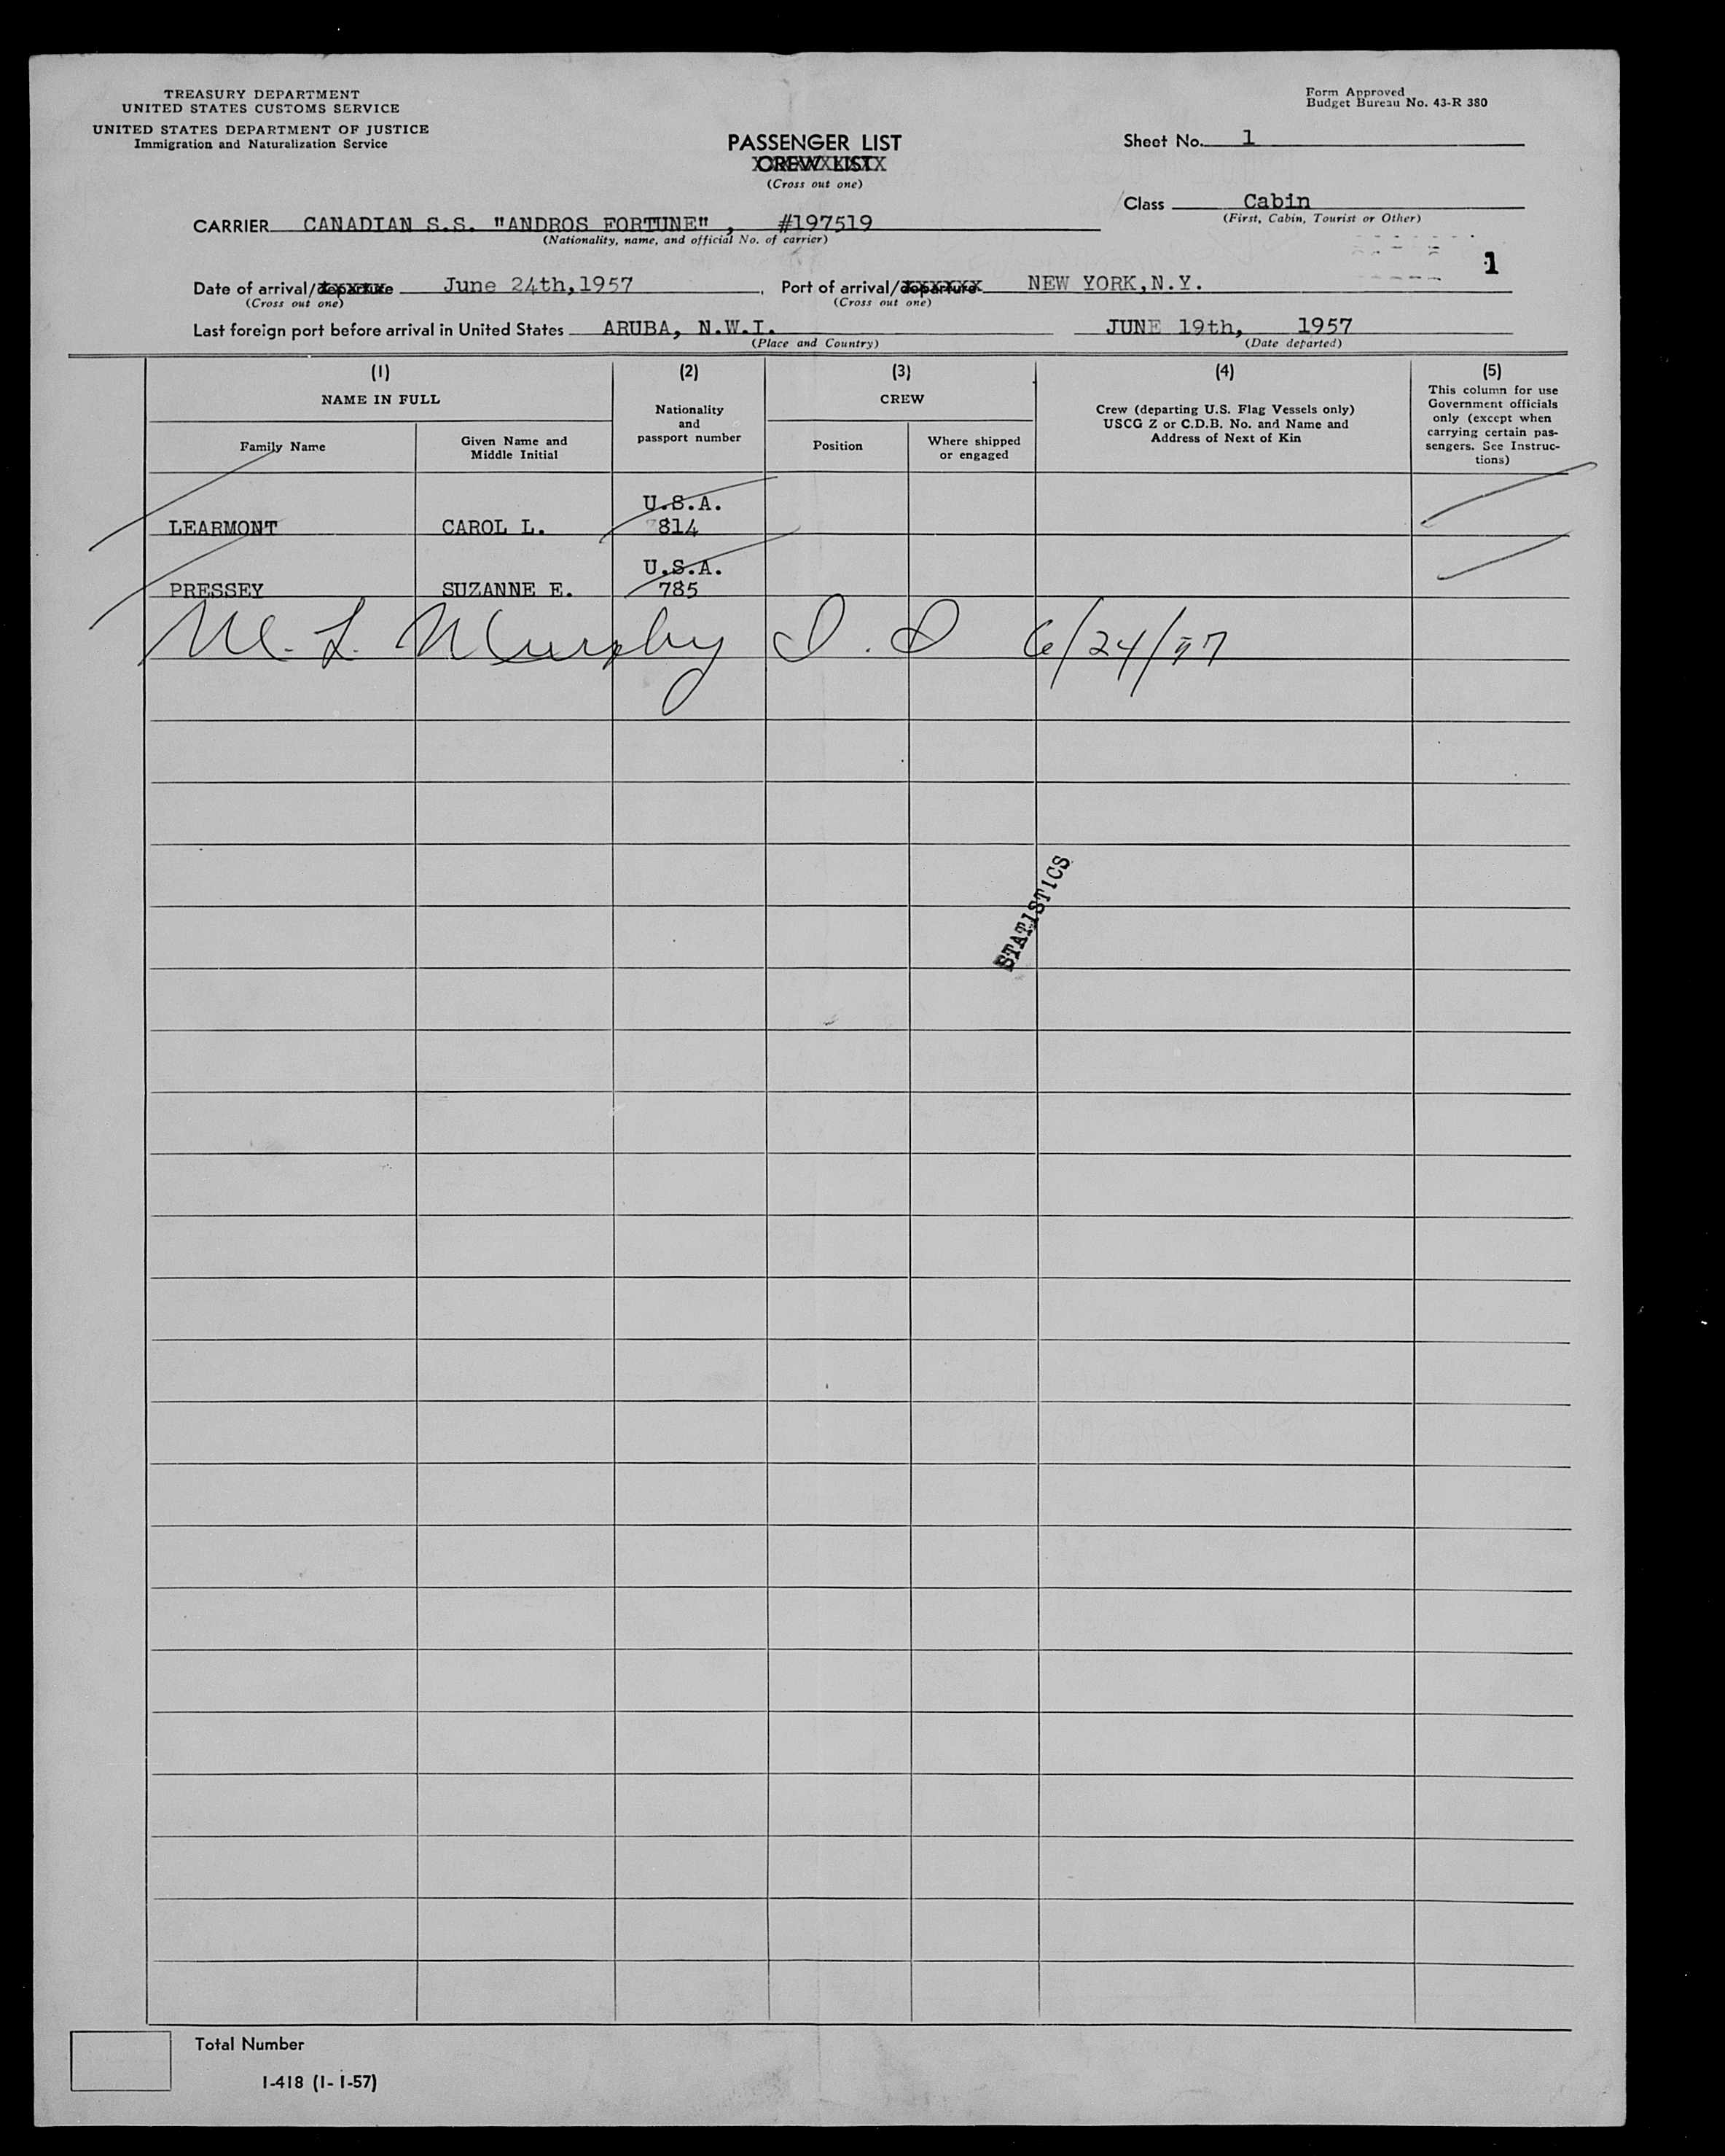 TREASURY DEPARTMENT
UNITED STATES CUSTOMS SERVICE
UNITED STATES DEPARTMENT OF JUSTICE
Immigration and Naturalization Service
Form Approved
Budget Bureau No. 43-R 380
PASSENGER LIST
CREW LIST
(Cross out one)
Sheet No. 1
Class Cabin
(First, Cabin, Tourist or Other)
CARRIER CANADIAN S.S. "ANDROS FORTUNE" , #197519
(Nationality, name, and official No. of carrier)
1
Date of arrival/departure June 24th,1957. Port of arrival/departure NEW YORK,N.Y.
(Cross out one) (Cross out one)
Last foreign port before arrival in United States ARUBA, N.W.I. JUNE 19th, 1957
(Place and Country) (Date departed)
(1) (2) (3) (4) (5)
NAME IN FULL
Family Name
Given Name and
Middle Initial
Nationality
and
passport number
CREW
Position
Where shipped
or engaged
Crew (departing U.S. Flag Vessels only)
USCG Z or C.D.B. No. and Name and
Address of Next of Kin
This column for use
Government officials
only (except when
carrying certain pas-
sengers. See Instruc-
tions)
U.S.A.
LEARMONT CAROL L. 814
U.S.A.
PRESSEY SUZANNE E. 785
M. L. Murphy I.O 6/24/57
STATISTICS
Total Number
I-418 (1-1-57)